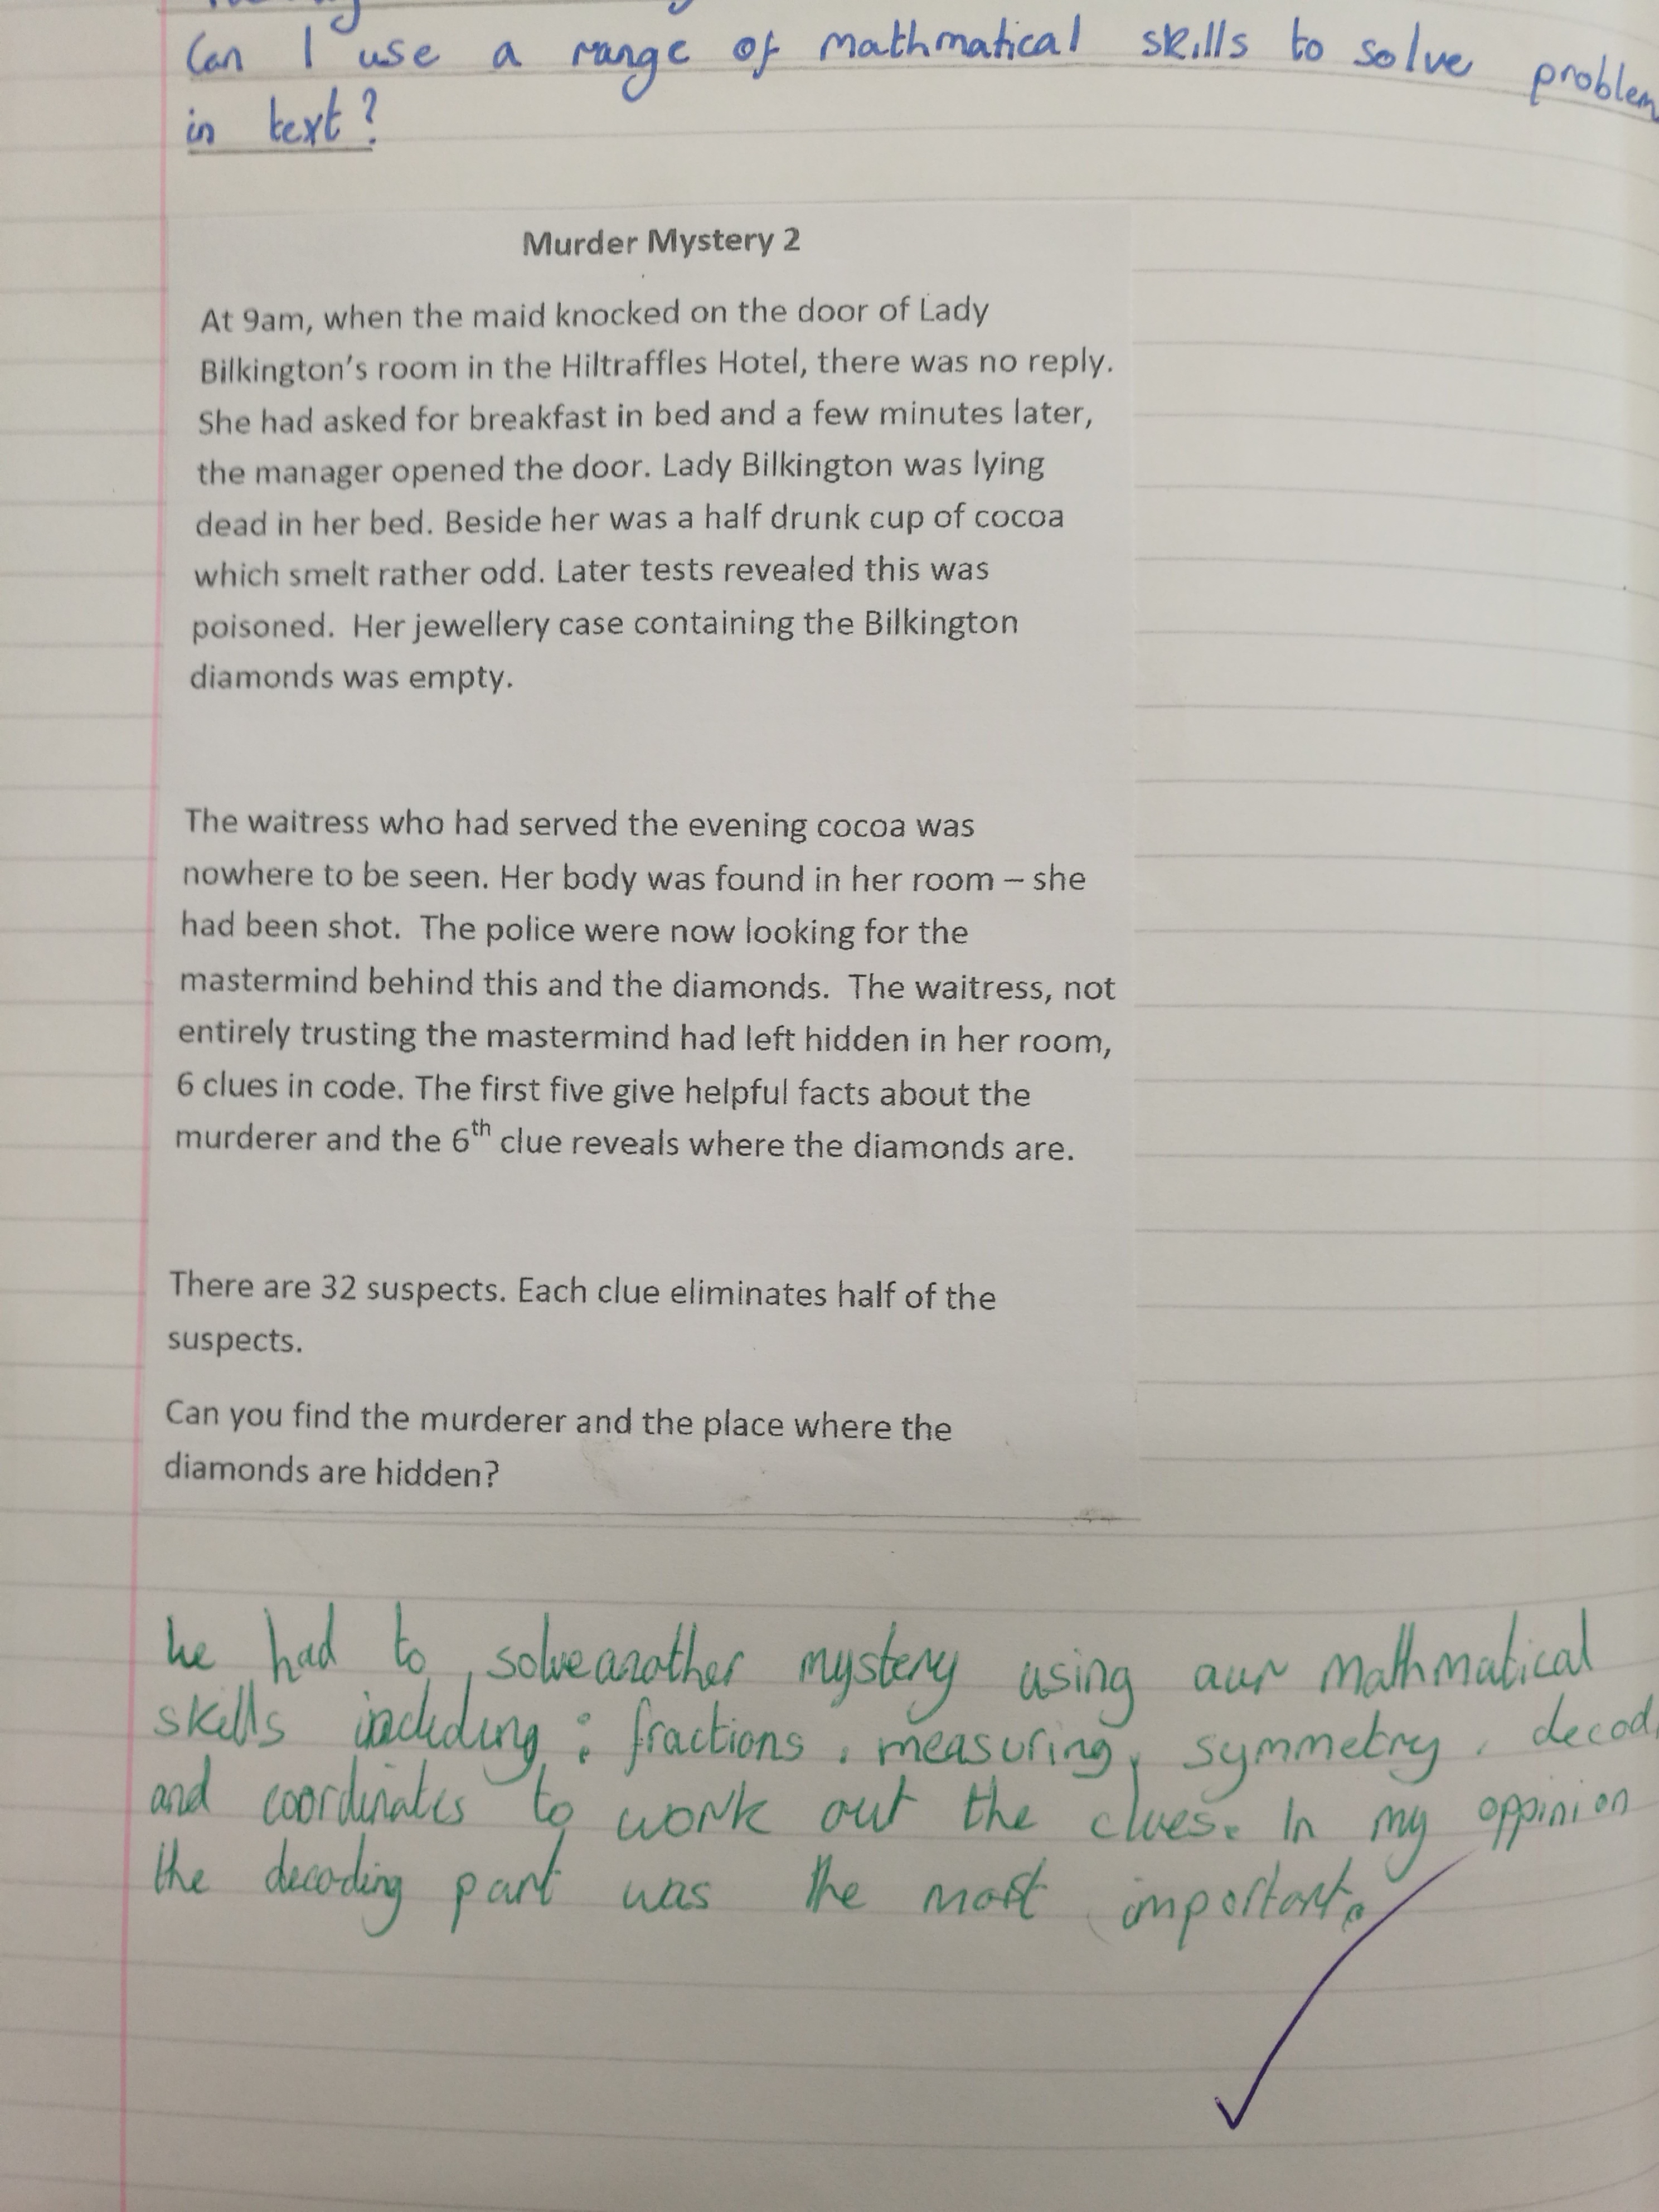 Can I use a range of mathmatical skills to solve problem
in text?
Murder Mystery 2
At 9am, when the maid knocked on the door of Lady
Bilkington's room in the Hiltraffles Hotel, there was no reply.
She had asked for breakfast in bed and a few minutes later,
the manager opened the door. Lady Bilkington was lying
dead in her bed. Beside her was a half drunk cup of cocoa
which smelt rather odd. Later tests revealed this was
poisoned. Her jewellery case containing the Bilkington
diamonds was empty.
The waitress who had served the evening cocoa was
nowhere to be seen. Her body was found in her room – she
had been shot. The police were now looking for the
mastermind behind this and the diamonds. The waitress, not
entirely trusting the mastermind had left hidden in her room,
6 clues in code. The first five give helpful facts about the
murderer and the 6th clue reveals where the diamonds are.
There are 32 suspects. Each clue eliminates half of the
suspects.
Can you find the murderer and the place where the
diamonds are hidden?
We had to solve another mystery using our mathmatical
skills including : fractions, measuring, symmetry, decod
and coordinates to work out the clues. In my oppinion
the decoding part was the most important.